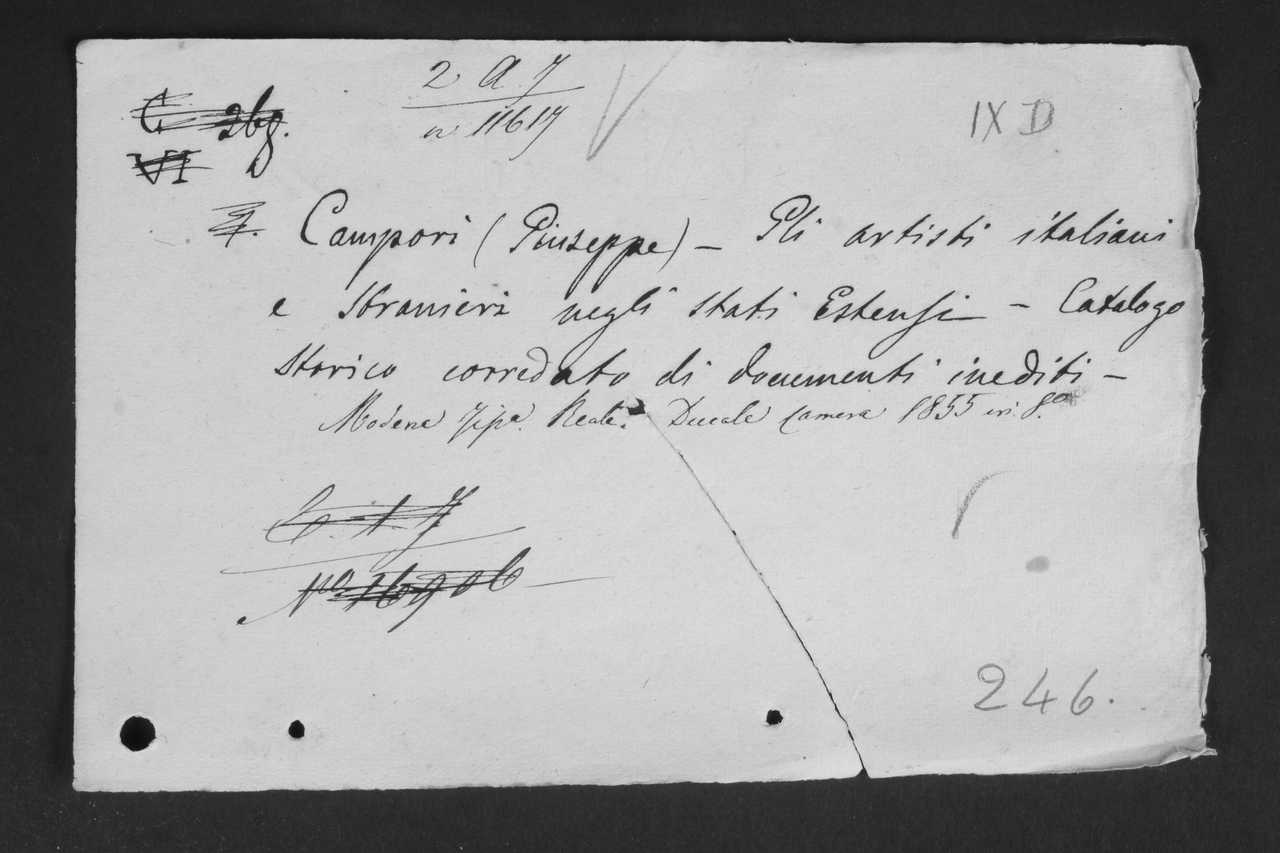 2 A 7
n. 11617
IX D
C 268.
VI
4. Campori (Giuseppe) – Gli artisti italiani
e stranieri negli stati Estensi – Catalogo
storico corredato di documenti inediti –
Modena Tipa. Reale. Ducale Camera 1855 in 8.o
C 1 7
No 16906
246.